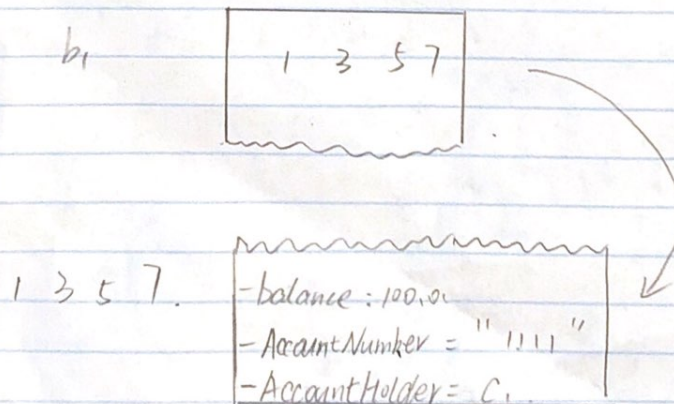 b₁
1 3 5 7
1 3 5 7.
-balance : 100.0
-AccountNumber = "1111"
-AccountHolder = C.